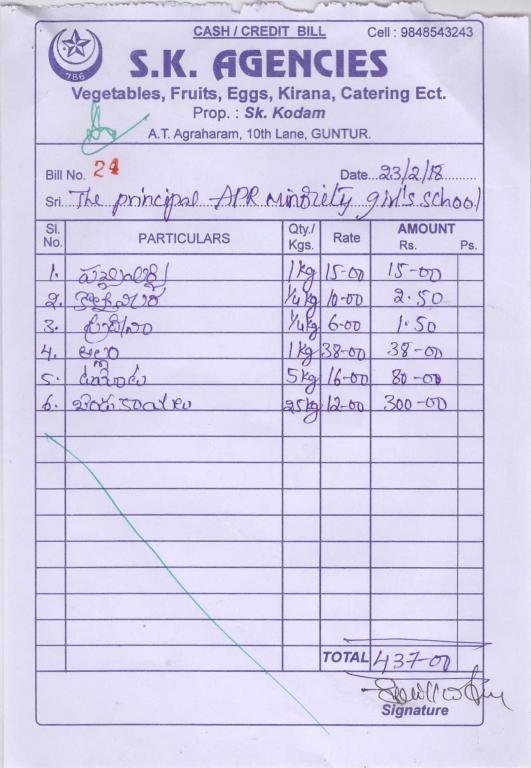 CASH / CREDIT BILL Cell : 9848543243
786
S.K. AGENCIES
Vegetables, Fruits, Eggs, Kirana, Catering Ect.
Prop. : Sk. Kodam
A.T. Agraharam, 10th Lane, GUNTUR.
Bill No. 24 Date 23/2/18
Sri. The principal APR minority girl's school
Sl. No. PARTICULARS Qty./ Kgs. Rate AMOUNT Rs. Ps.
1. పచ్చిమిర్చి 1kg 15-00 15-00
2. కొత్తిమీర 1/4kg 10-00 2.50
3. పుదీనా 1/4kg 6-00 1.50
4. అల్లం 1kg 38-00 38-00
5. టమోటాలు 5kg 16-00 80-00
6. 25kg 12-00 300-00
TOTAL 437-00
Signature